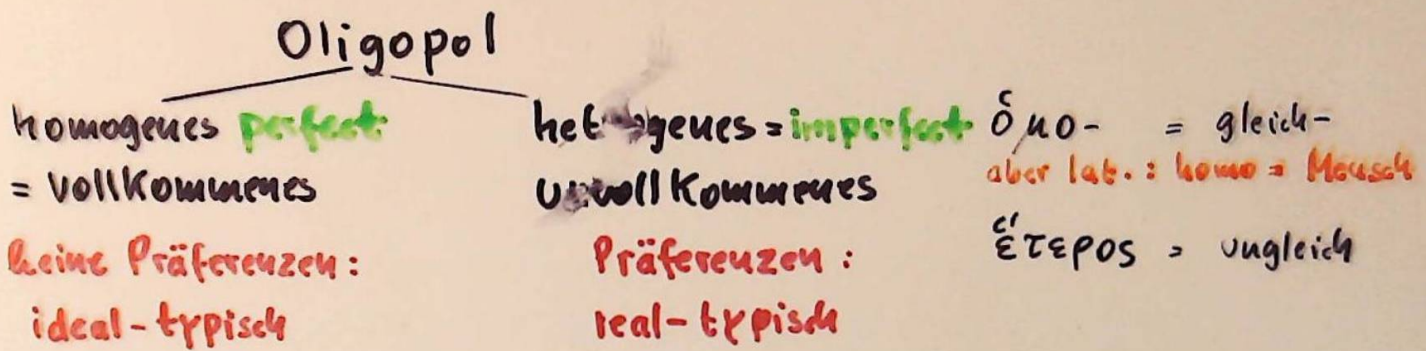 Oligopol
homogenes perfect
= vollkommenes
keine Präferenzen:
ideal-typisch
heterogenes = imperfect
unvollkommenes
Präferenzen:
real-typisch
ὁμο- = gleich-
aber lat.: homo = Mensch
ἕτερος = ungleich